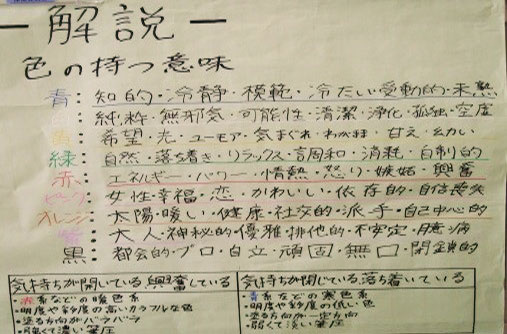 ー解説ー
色の持つ意味
青：知的・冷静・模範・冷たい・受動的・未熟
白：純粋・無邪気・可能性・清潔・浄化・孤独・空虚
黄：希望・光・ユーモア・気まぐれ・わがまま・甘え・幼い
緑：自然・落ち着き・リラックス・調和・消耗・自制的
赤：エネルギー・パワー・情熱・怒り・嫉妬・興奮
ピンク：女性・幸福・恋・かわいい・依存的・自信喪失
オレンジ：太陽・暖い・健康・社交的・派手・自己中心的
紫：大人・神秘的・優雅・排他的・不安定・臆病
黒：都会的・プロ・自立・頑固・無口・閉鎖的
気持ちが開いている興奮している
・赤系などの暖色系
・明度や彩度の高いカラフルな色
・塗る方向がバラバラ
・弱くて濃い筆圧
気持ちが閉じている落ち着いている
・青系などの寒色系
・明度や彩度の低い色
・塗る方向が一定方向
・弱くて薄い筆圧